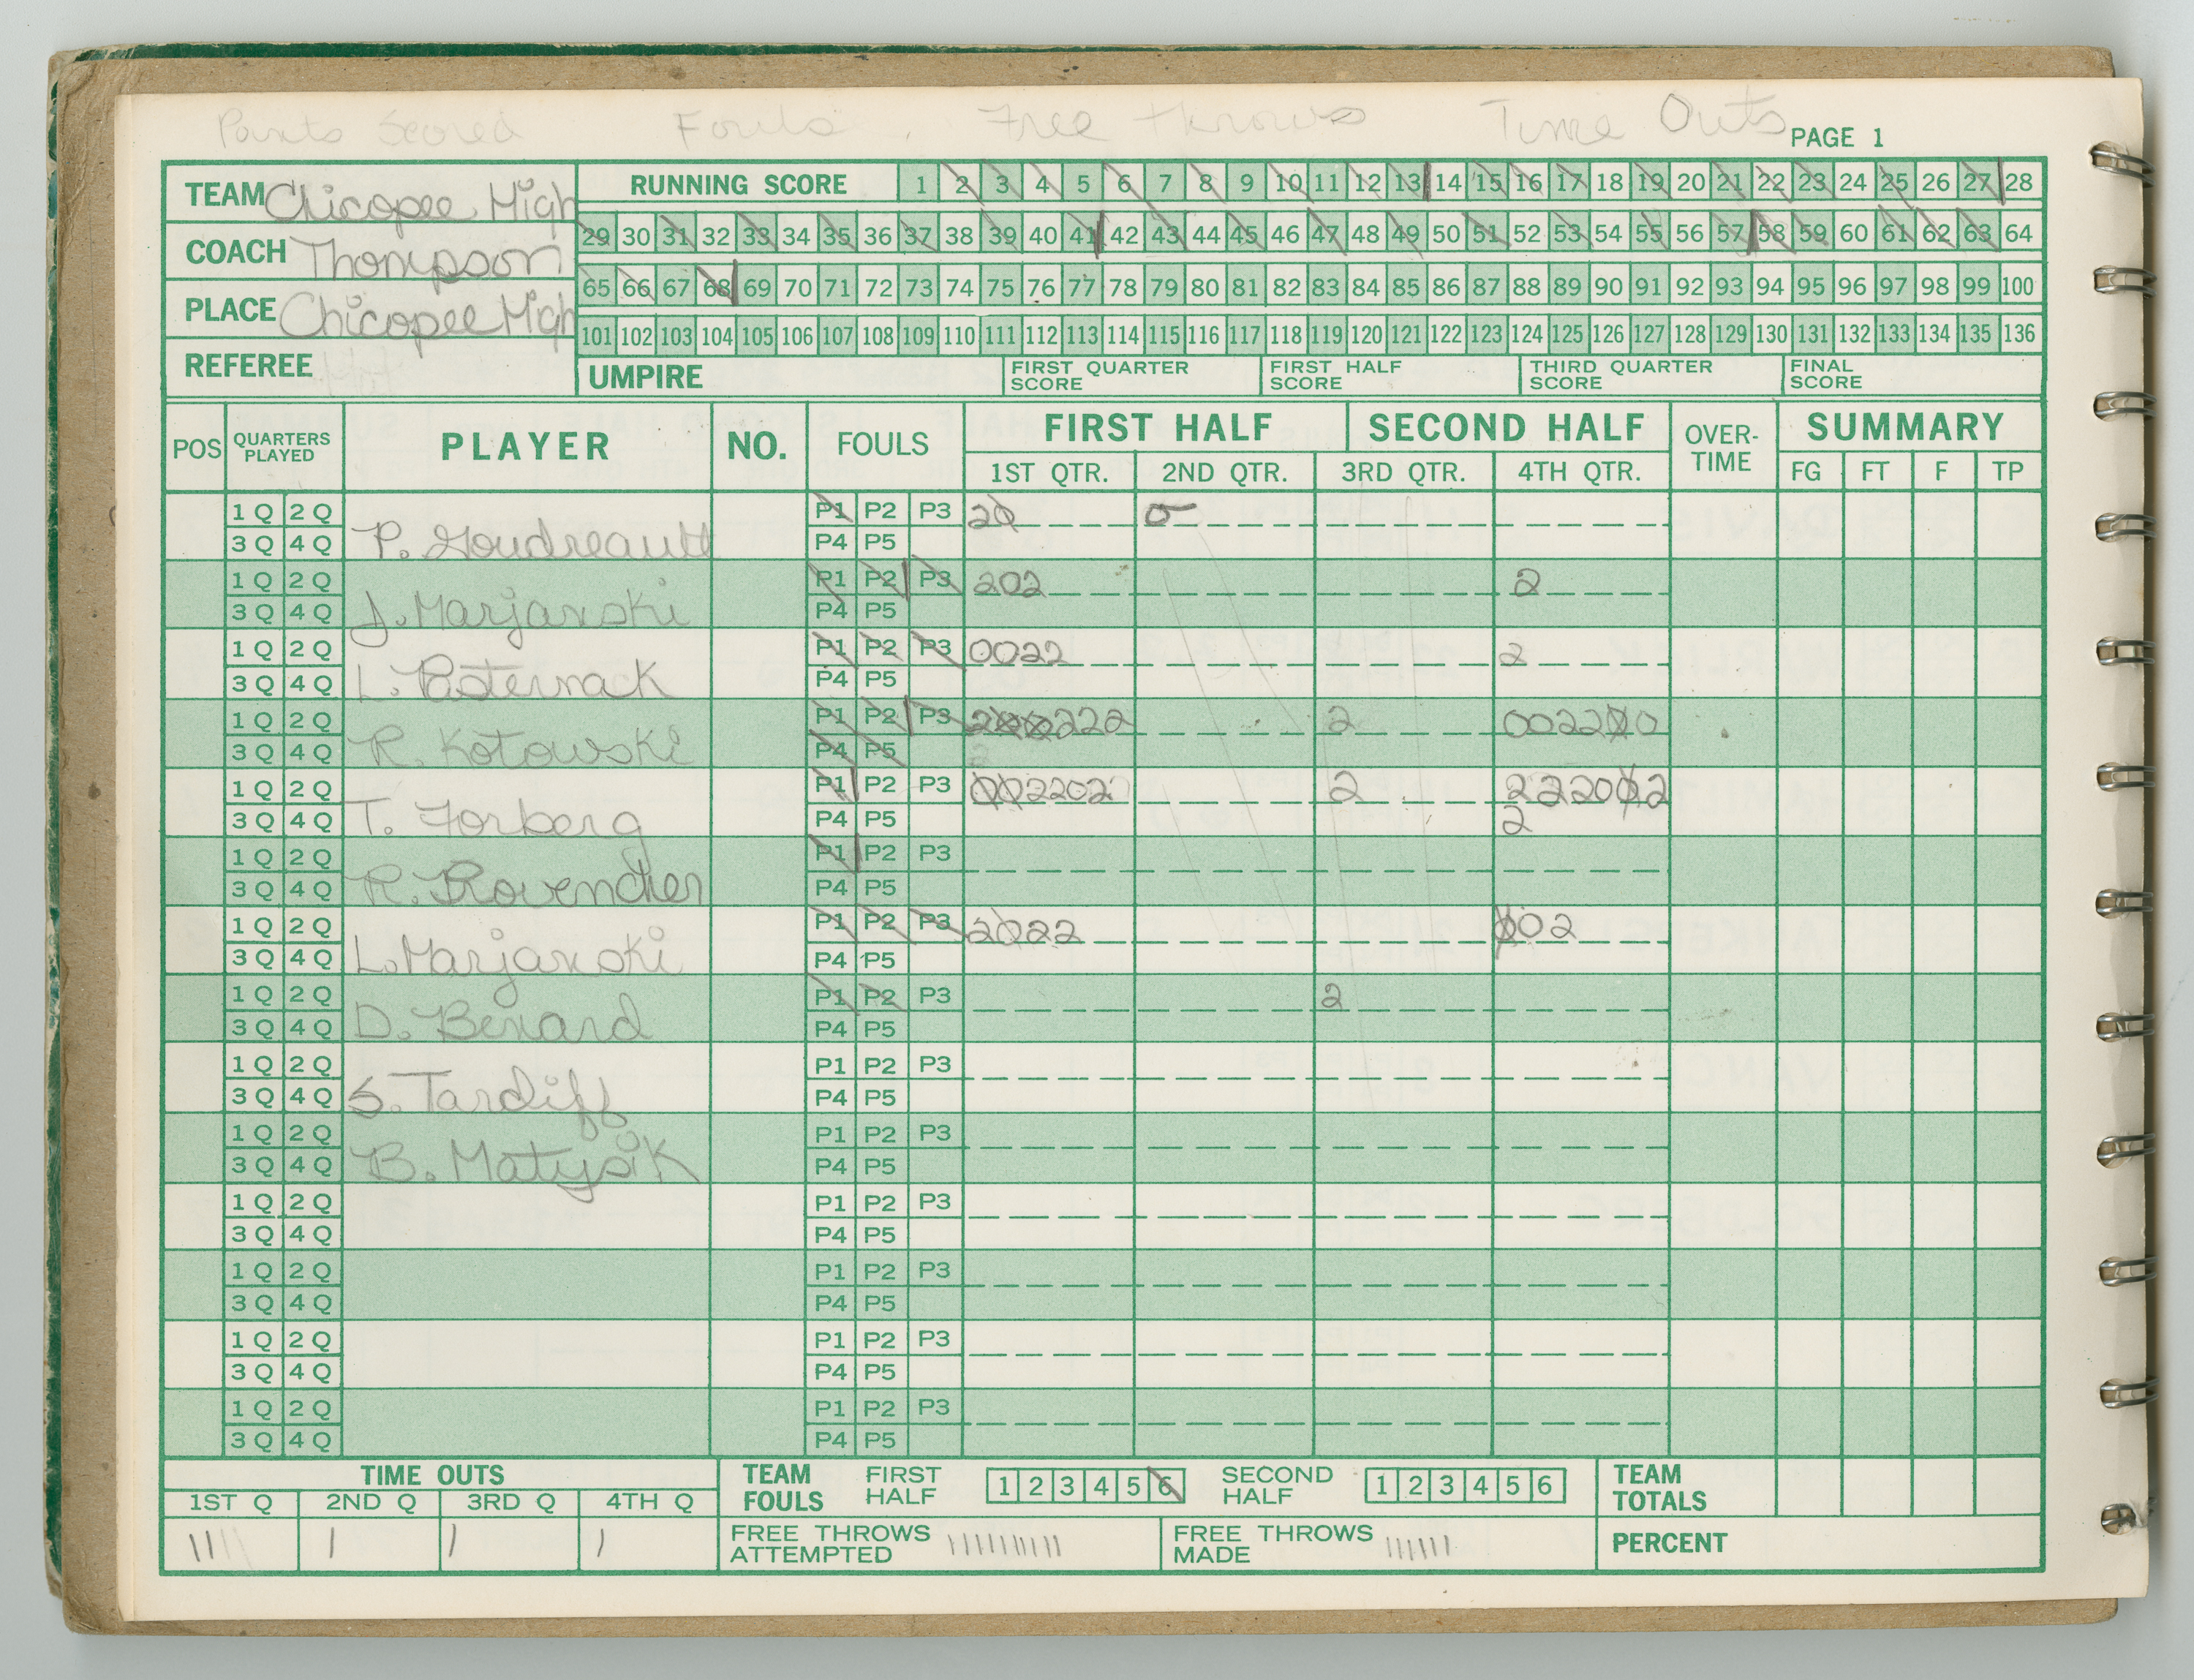 Points Scored Fouls Free Throws Time Outs
PAGE 1
TEAM Chicopee High
RUNNING SCORE 1 2 3 4 5 6 7 8 9 10 11 12 13 14 15 16 17 18 19 20 21 22 23 24 25 26 27 28
COACH Thompson
29 30 31 32 33 34 35 36 37 38 39 40 41 42 43 44 45 46 47 48 49 50 51 52 53 54 55 56 57 58 59 60 61 62 63 64
PLACE Chicopee High
65 66 67 68 69 70 71 72 73 74 75 76 77 78 79 80 81 82 83 84 85 86 87 88 89 90 91 92 93 94 95 96 97 98 99 100
101 102 103 104 105 106 107 108 109 110 111 112 113 114 115 116 117 118 119 120 121 122 123 124 125 126 127 128 129 130 131 132 133 134 135 136
REFEREE UMPIRE FIRST QUARTER SCORE FIRST HALF SCORE THIRD QUARTER SCORE FINAL SCORE
POS QUARTERS PLAYED PLAYER NO. FOULS FIRST HALF SECOND HALF OVER-TIME SUMMARY
1ST QTR. 2ND QTR. 3RD QTR. 4TH QTR. FG FT F TP
1 Q 2 Q P1 P2 P3 20 0
3 Q 4 Q P. Goudreault P4 P5
1 Q 2 Q P1 P2 P3 202 2
3 Q 4 Q J. Marjanski P4 P5
1 Q 2 Q P1 P2 P3 0022 2
3 Q 4 Q L. Pasternack P4 P5
1 Q 2 Q P1 P2 P3 222 2 002200
3 Q 4 Q R. Kotowski P4 P5
1 Q 2 Q P1 P2 P3 002202 2 222002
3 Q 4 Q T. Forberg P4 P5 2
1 Q 2 Q P1 P2 P3
3 Q 4 Q R. Provencher P4 P5
1 Q 2 Q P1 P2 P3 2022 002
3 Q 4 Q L. Marjanski P4 P5
1 Q 2 Q P1 P2 P3 2
3 Q 4 Q D. Benard P4 P5
1 Q 2 Q P1 P2 P3
3 Q 4 Q S. Tardiff P4 P5
1 Q 2 Q P1 P2 P3
3 Q 4 Q B. Matysik P4 P5
1 Q 2 Q P1 P2 P3
3 Q 4 Q P4 P5
1 Q 2 Q P1 P2 P3
3 Q 4 Q P4 P5
1 Q 2 Q P1 P2 P3
3 Q 4 Q P4 P5
1 Q 2 Q P1 P2 P3
3 Q 4 Q P4 P5
TIME OUTS TEAM FOULS FIRST HALF 1 2 3 4 5 6 SECOND HALF 1 2 3 4 5 6 TEAM TOTALS
1ST Q 2ND Q 3RD Q 4TH Q
|| | | | FREE THROWS ATTEMPTED |||||||||| FREE THROWS MADE |||||| PERCENT